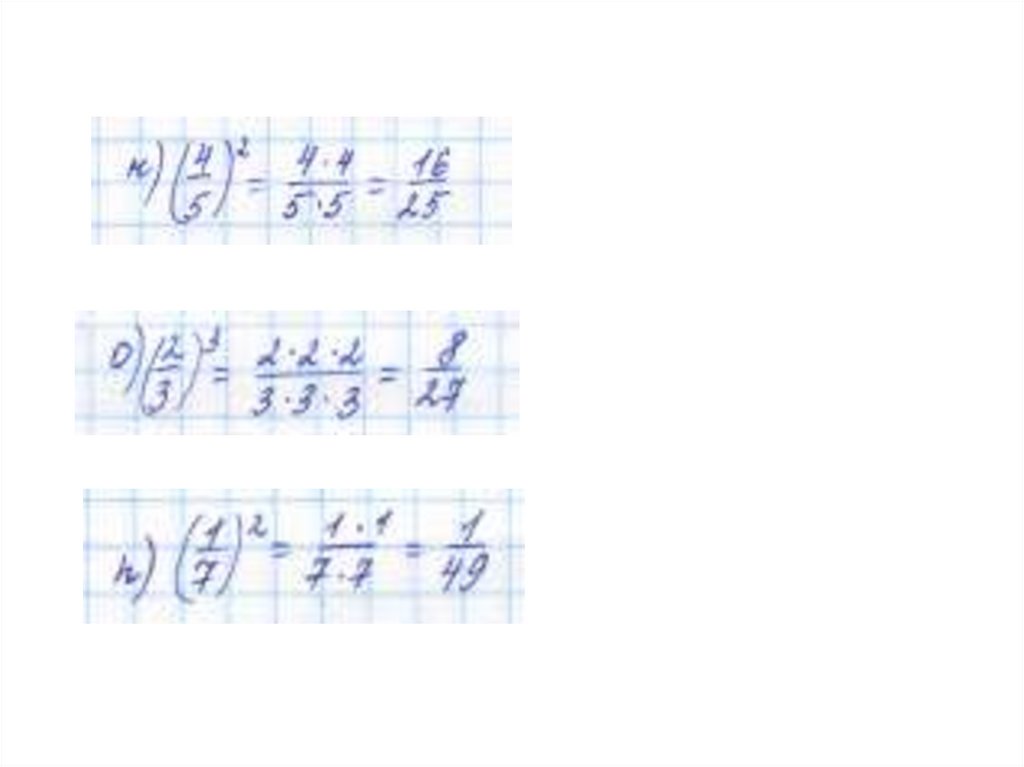 н) (4/5)² = 4·4/5·5 = 16/25
о) (2/3)³ = 2·2·2/3·3·3 = 8/27
п) (1/7)² = 1·1/7·7 = 1/49